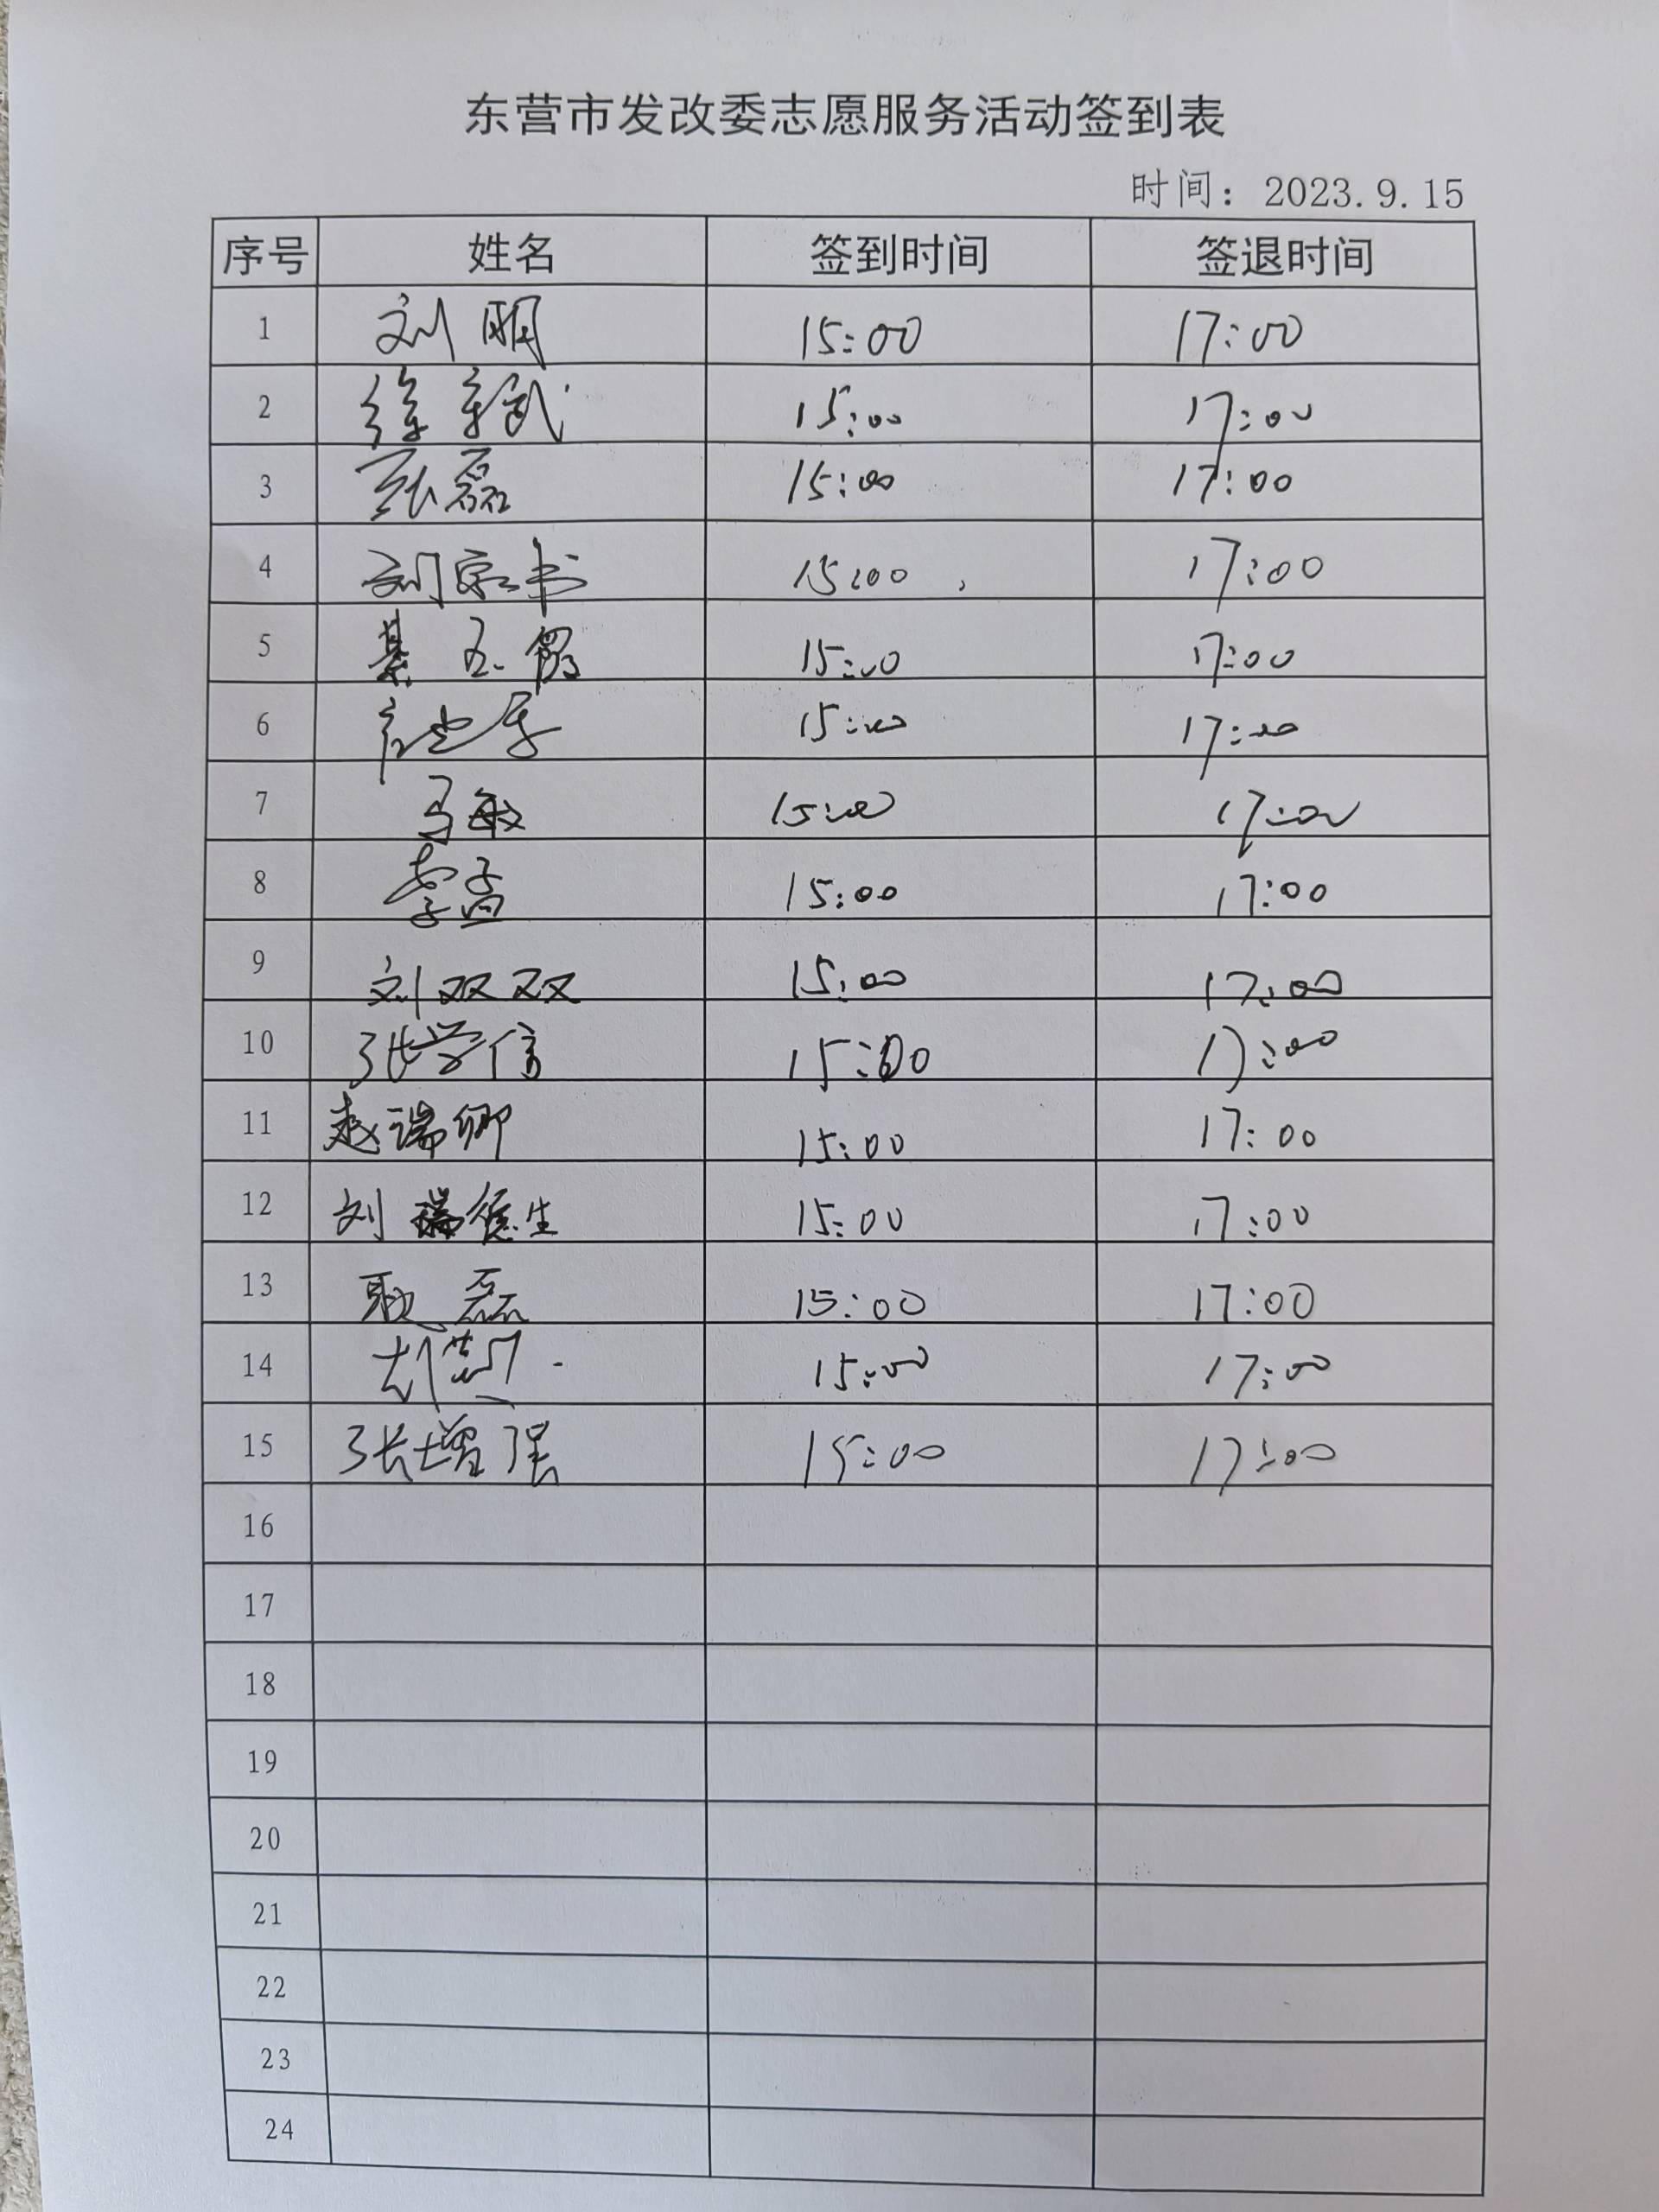 东营市发改委志愿服务活动签到表
时间：2023.9.15
序号 姓名 签到时间 签退时间
1 刘明 15:00 17:00
2 徐 15:00 17:00
3 张磊 15:00 17:00
4 刘宗书 15:00 17:00
5 綦玉 15:00 17:00
6 15:00 17:00
7 马敏 15:00 17:00
8 李孟 15:00 17:00
9 刘双双 15:00 17:00
10 张学信 15:00 17:00
11 赵瑞卿 15:00 17:00
12 刘德生 15:00 17:00
13 耿磊 15:00 17:00
14 15:00 17:00
15 张增强 15:00 17:00
16
17
18
19
20
21
22
23
24